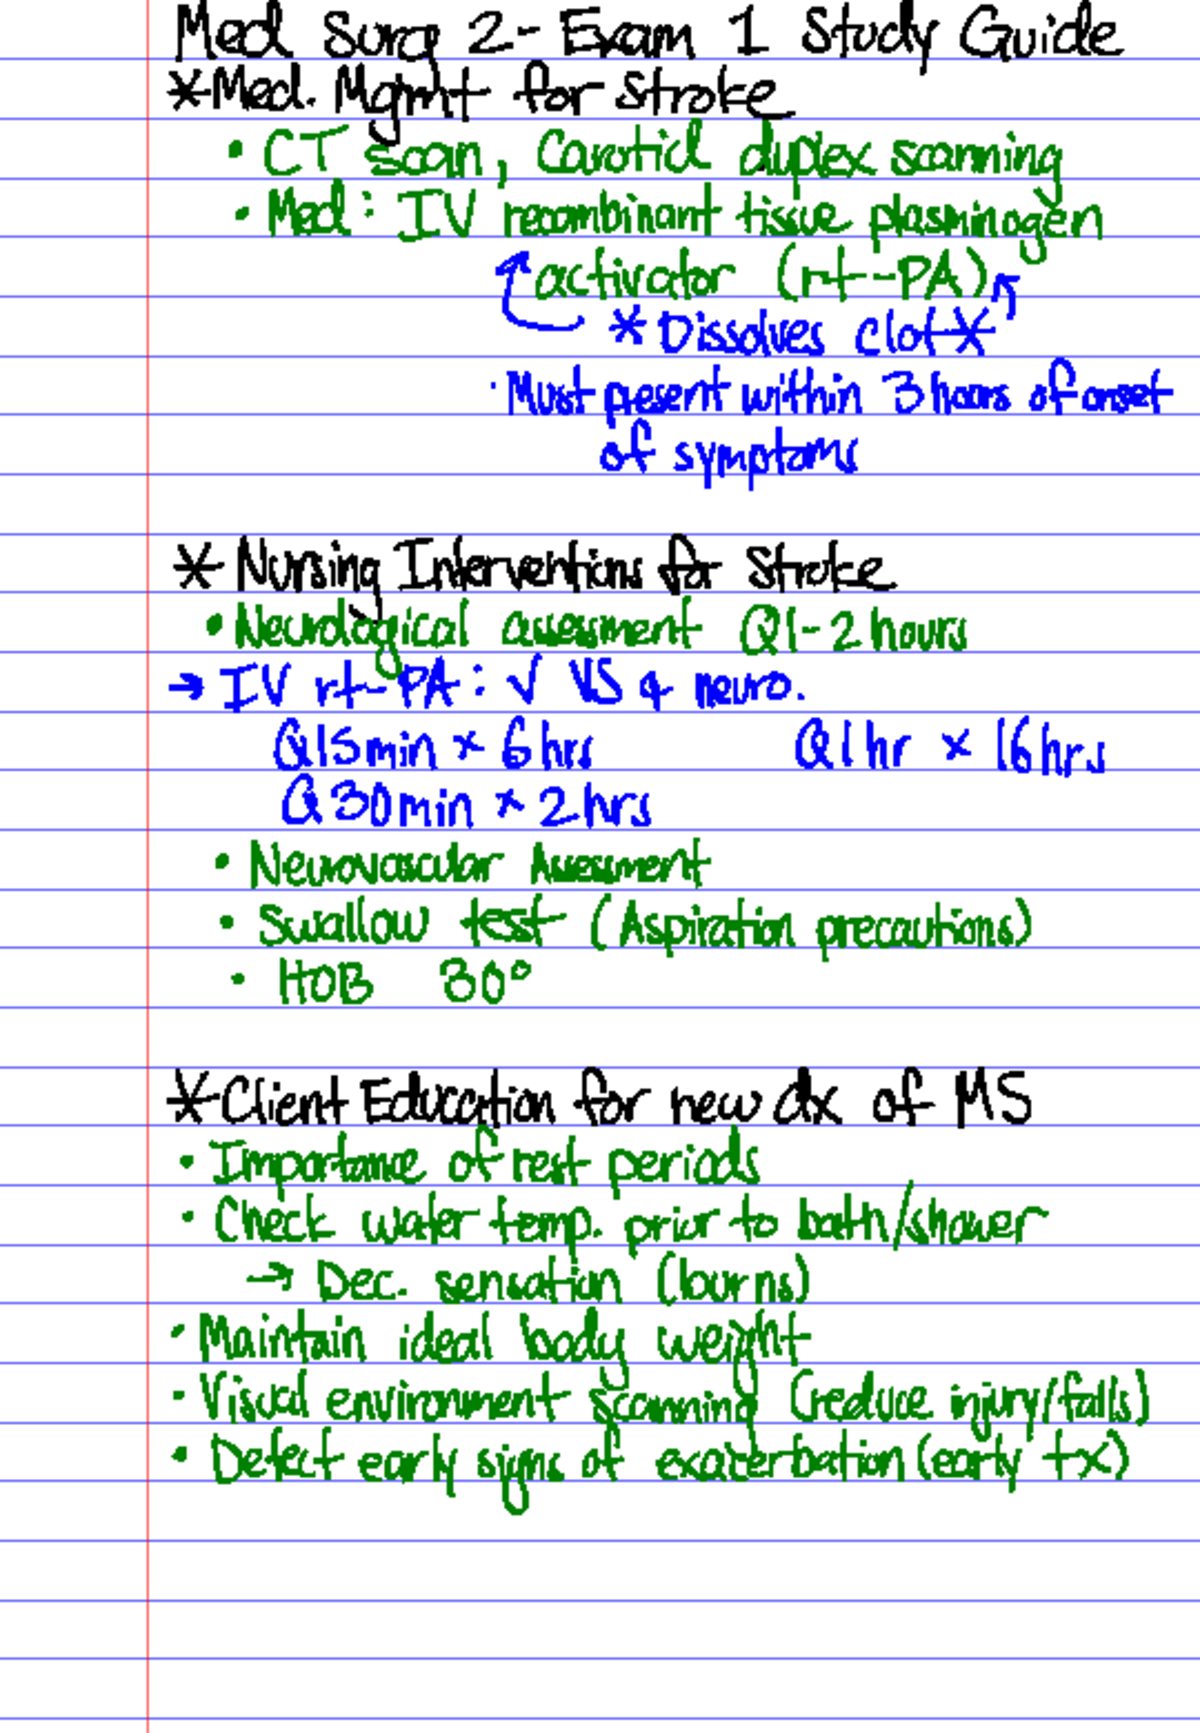 Med Surg 2- Exam 1 Study Guide
*Med. Mgmt for Stroke
• CT scan, Carotid duplex scanning
• Med: IV recombinant tissue plasminogen
activator (rt-PA)
*Dissolves clot*
· Must present within 3 hours of onset
of symptoms
* Nursing Interventions for Stroke
• Neurological assessment Q1-2 hours
→ IV rt-PA: √ VS & neuro.
Q15min × 6hrs Q1hr × 16hrs
Q30min × 2hrs
• Neurovascular Assessment
• Swallow test (Aspiration precautions)
• HOB 30°
*Client Education for new dx of MS
• Importance of rest periods
• Check water temp. prior to bath/shower
→ Dec. sensation (burns)
• Maintain ideal body weight
• Visual environment scanning (reduce injury/falls)
• Detect early signs of exacerbation (early tx)